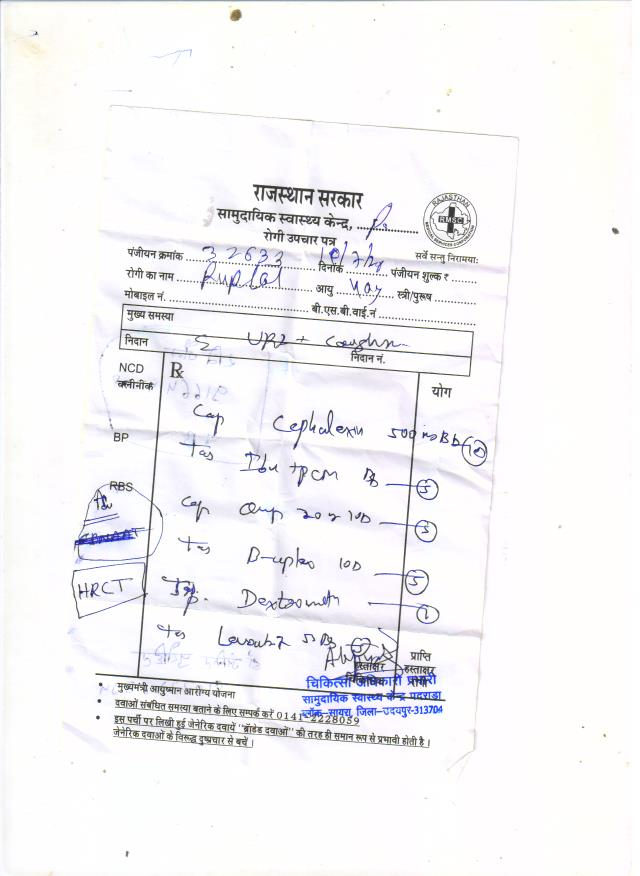 राजस्थान सरकार
सामुदायिक स्वास्थ्य केन्द्र, ............
रोगी उपचार पत्र
RAJASTHAN
RMSC
MEDICAL SERVICES CORPORATION
सर्वे सन्तु निरामयाः
पंजीयन क्रमांक 32633 दिनांक पंजीयन शुल्क ₹ ........
रोगी का नाम Ruplal आयु 40y स्त्री/पुरूष ........
मोबाइल नं. ........ बी.एस.बी.वाई.नं ........
मुख्य समस्या
निदान URI + Cough
निदान नं.
NCD
क्लीनीक
Rx
योग
Cap Cephalexin 500 mg Bd 10
BP
Tas Ibu + PCM Bd 5
RBS
Cap Omp 20 10D 5
Tas B-uplex 10D 5
HRCT
Syp. Dextrometh 1
Tas
हस्ताक्षर
प्राप्ति
हस्ताक्षर
चिकित्सा अधिकारी प्रभारी
सामुदायिक स्वास्थ्य केन्द्र पदराडा
ब्लॉक-सायरा, जिला-उदयपुर-313704
• मुख्यमंत्री आयुष्मान आरोग्य योजना
• दवाओं संबंधित समस्या बताने के लिए सम्पर्क करें 0141-2228059
• इस पर्ची पर लिखी हुई जेनेरिक दवायें "ब्रॉडेड दवाओं" की तरह ही समान रूप से प्रभावी होती है।
जेनेरिक दवाओं के विरूद्ध दुष्प्रचार से बचें।